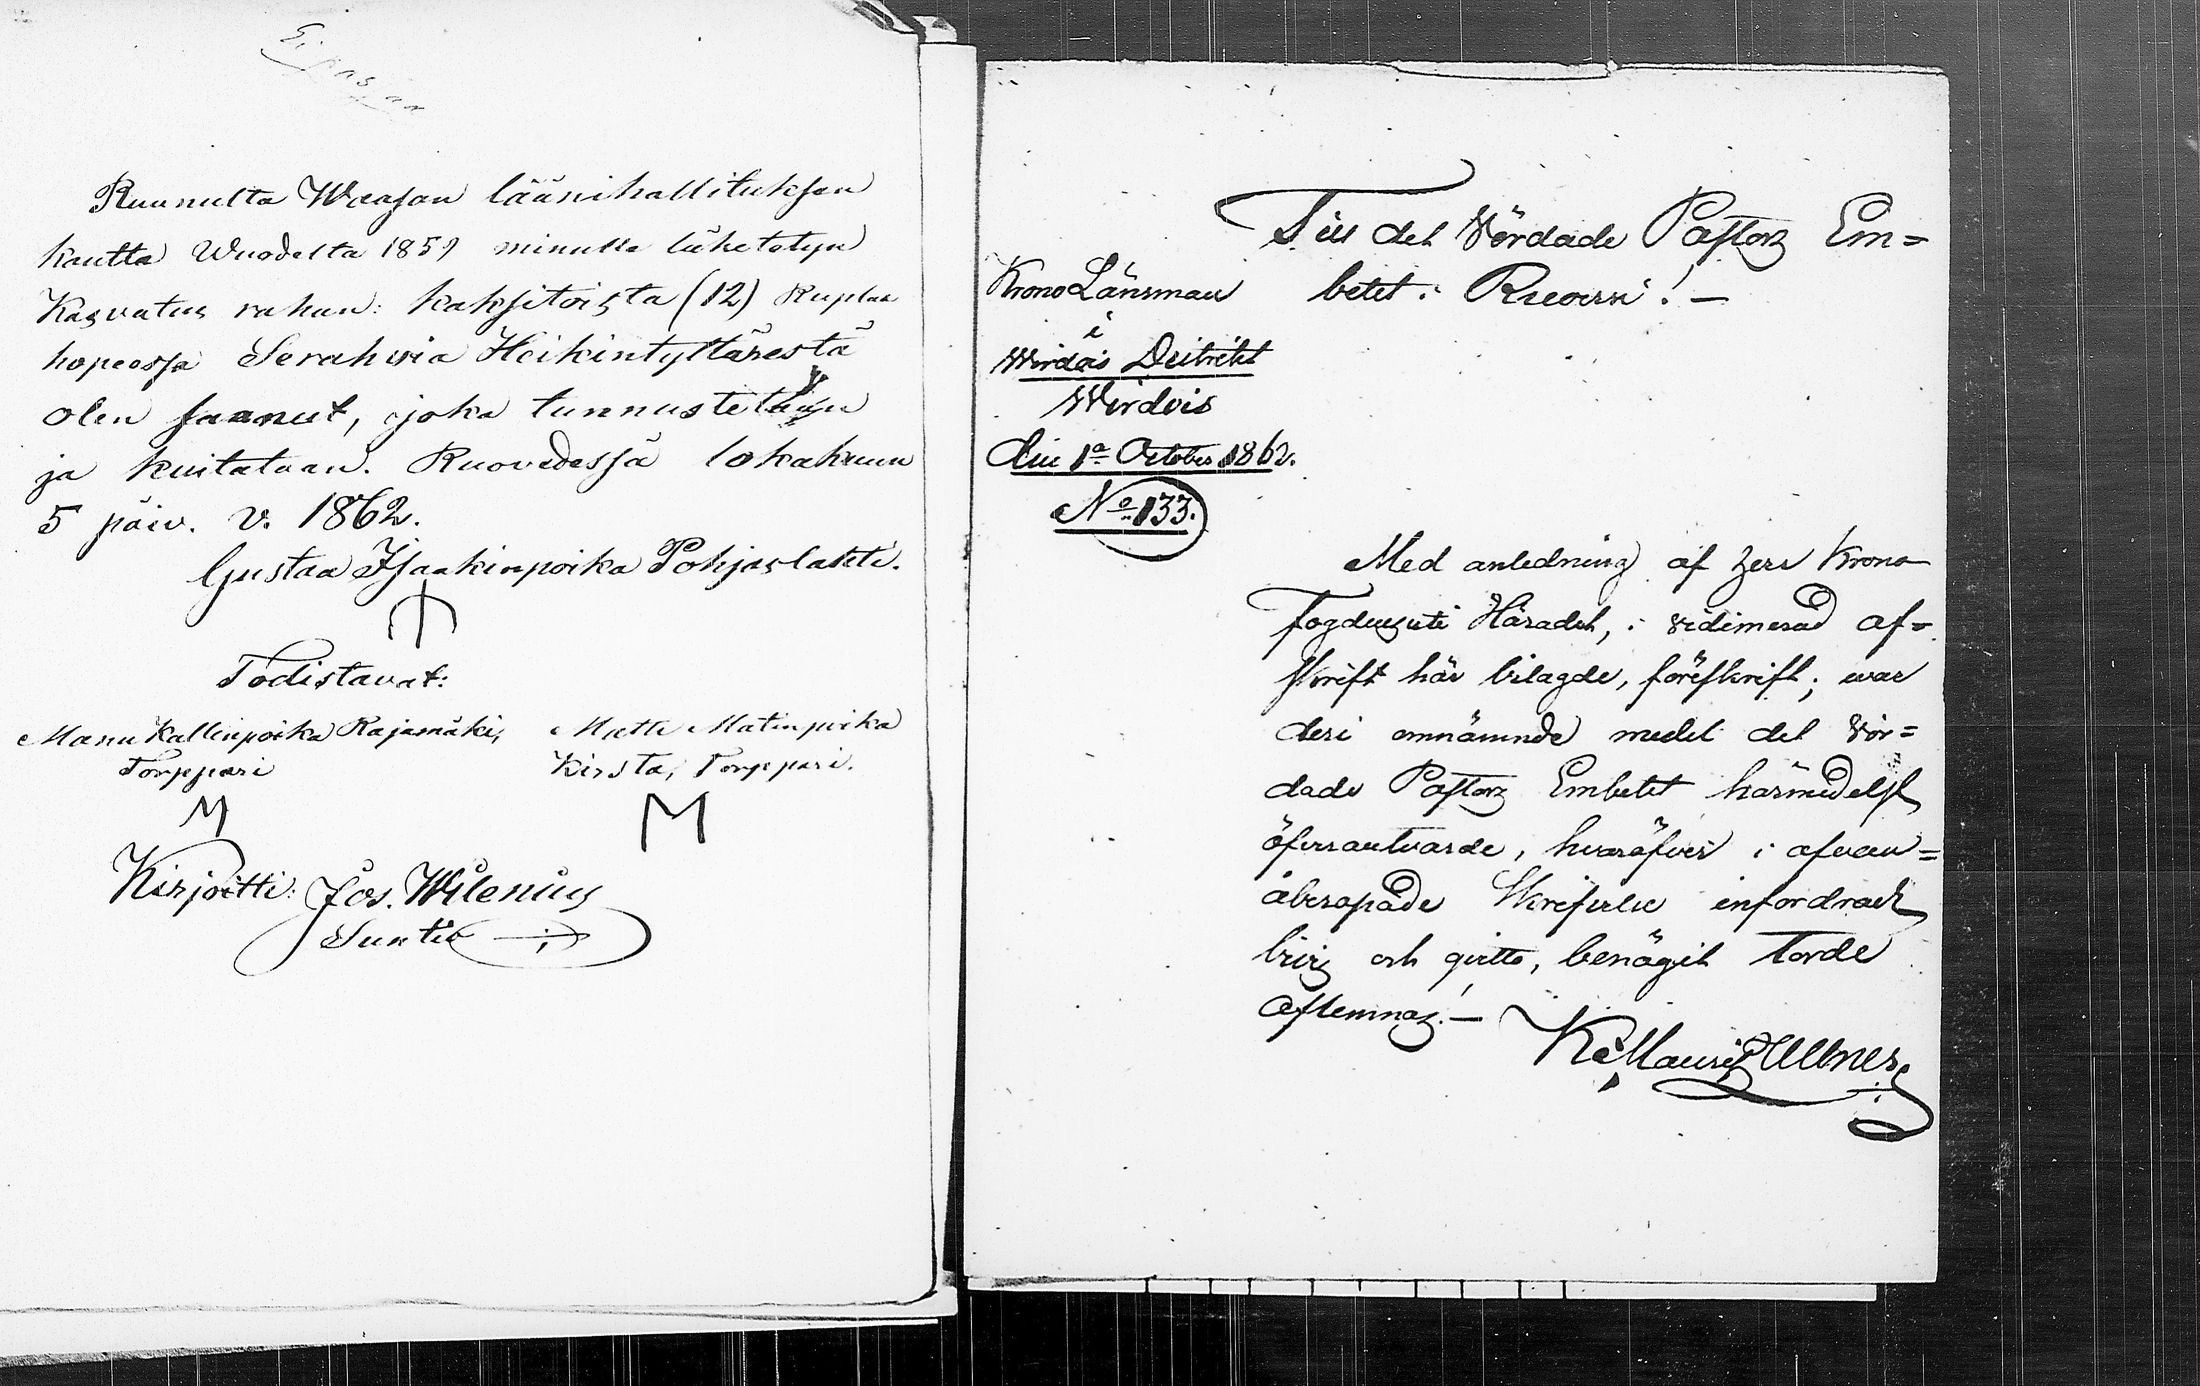 Ruunulta Waasan läänihallituksen
kautta Wuodelta 1859 minulle lähetetyn
Kasvatus rahan: kaksitoista (12) Ruplaa
hopeossa Serahwia Heikintyttärestä
olen saanut, joka tunnustetaan
ja kuitataan. Ruovedessä lokakuun
5 päiv. v. 1862.
Gustaa Isaakinpoika Pohjaslahti.
Todistavat:
Manu Kallenpoika Rajamäki, Matti Matinpoika
Torppari Kirsta, Torppari.
M M
Kirjoitti: Jos. Wilenius
Suntio
Till det Vördade Pastors Em=
betet i Ruovesi! —
Krono Länsman
i
Wirdois Distrikt
Wirdois
den 1a October 1862.
No 133.
Med anledning af Herr Krono
Fogdens uti Häradet, i vidimerad af=
skrift här bilagde, föreskrift; war
deri omnämnde medel det Vör=
dade Pastors Embetet härmedelst
öfverantvarde, hvaröfver i ofvan=
åberopade Skrifvelse infordradt
bevis och qvitto, benäget torde
aflemnas! —